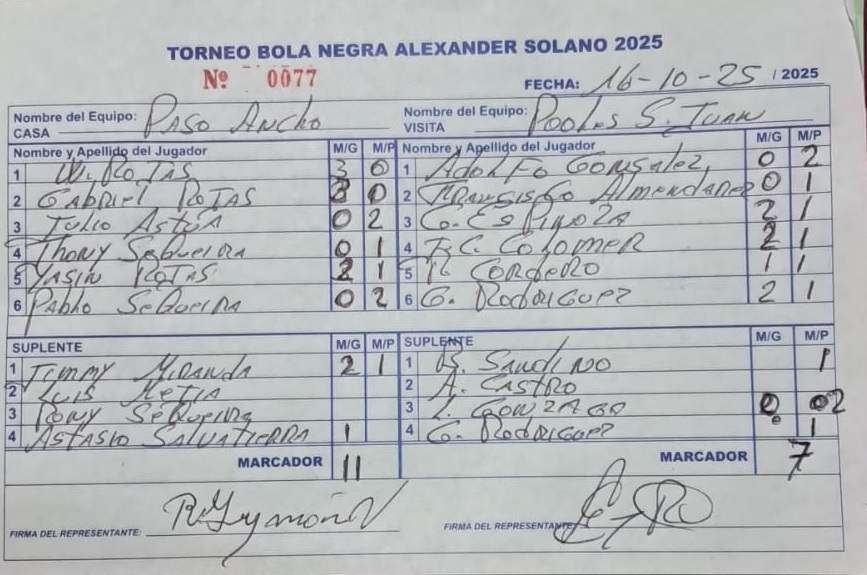 TORNEO BOLA NEGRA ALEXANDER SOLANO 2025
Nº 0077
FECHA: 16-10-25 / 2025
Nombre del Equipo: CASA PASO ANCHO Nombre del Equipo: VISITA POOLES S. JUAN
Nombre y Apellido del Jugador M/G M/P Nombre y Apellido del Jugador M/G M/P
1 W. ROJAS 3 0 1 ADOLFO GONSALEZ 0 2
2 GABRIEL ROJAS 3 0 2 FRANSISCO ALMENDAREZ 0 1
3 JULIO ASTUA 0 2 3 G. ESPINOZA 2 1
4 JHONY SEQUEIRA 0 1 4 F.C. COLOMER 2 1
5 YASIN ROJAS 2 1 5 CORDERO 1 1
6 PABLO SEQUEIRA 0 2 6 G. RODRIGUEZ 2 1
SUPLENTE M/G M/P SUPLENTE M/G M/P
1 JIMMY MIRANDA 2 1 1 B. SANDINO 1
2 LUIS MEJIA 2 A. CASTRO
3 RONY SEQUEIRA 3 L. GONZAGO 0 02
4 ASTASIO SALVATIERRA 1 4 G. RODRIGUEZ 1
MARCADOR 11 MARCADOR 7
FIRMA DEL REPRESENTANTE: FIRMA DEL REPRESENTANTE